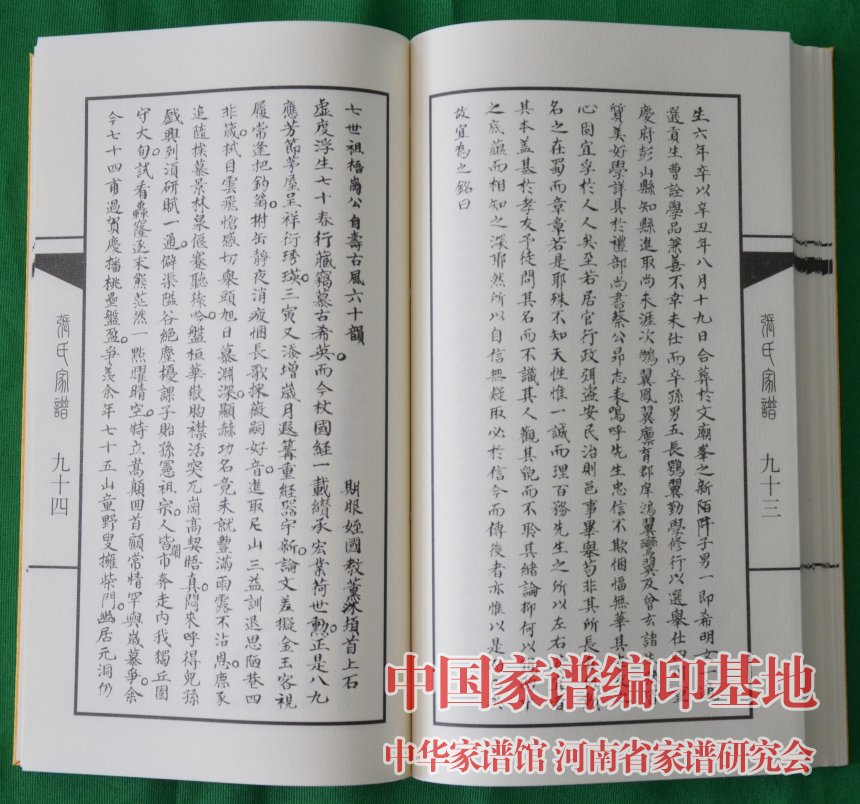 生六年卒以辛丑年八月十九日合葬於文廟峯之新陌阡子男一即希明女
選貢生曹詮學品兼善不幸未仕而卒孫男五長鶚翼勤學修行以選舉仕
慶府彭山縣知縣進取尚未涯次鵷翼鳳翼廪育郡庠鴻翼鸞翼及曾玄諸
質美好學詳具於禮部尚書蔡公昂志表嗚呼先生忠信不欺悃愊無華其
心間宜孚於人人矣至若居官行政弭盗安民治則邑事畢舉苟非其所長
名之在蜀而章章若是耶殊不知天性惟一誠而理百務先生之所以左右
其本盖基於孝友予徒問其名而不識其人觀其貌而不聆其緒論抑何以
之底蕴而相知之深耶然所以自信無疑取必於信今而傳後者亦惟以是
故宜為之銘曰
張氏家譜
九十三
七世祖梧崗公自壽古風六十韻
期服姪國教薰沐頓首上石
虛度浮生七十春行藏竊慕古希英而今杖國經一載纘承宏業荷世勳正是八九
應芳節茅屋呈祥衍琇瑛三寅又添增歲月遐籌重經器宇新論文羞擬金玉客視
履常逢把釣翁樹缶靜夜消疲悃長歌採薇嗣好音進取尼山三益訓退思陋巷四
非箴拭目雲飛愴感切舉頭旭日慕淵深顯赫功名竟未就豐滿雨露不沾恩庶豕
追隨挨暮景林泉偃蹇聽猿吟盤桓華嶽胸襟活突兀崗高契晤真悶來呼得兒孫
戲興到須研賦一通僻渠隘谷絕塵擾課子貽孫憲祖宗人皆鬧市奔走内我獨丘園
守大旬試看轟馥逐末熊茫然一點曜晴空特立嵩顛回首顧常情罕與歲慕爭余
今七十四甫過賀慶播桃壘盤盈爭羨余年七十五山童野叟擁柴門幽居元洞仍
張氏家譜
九十四
中国家谱编印基地
中华家谱馆 河南省家谱研究会